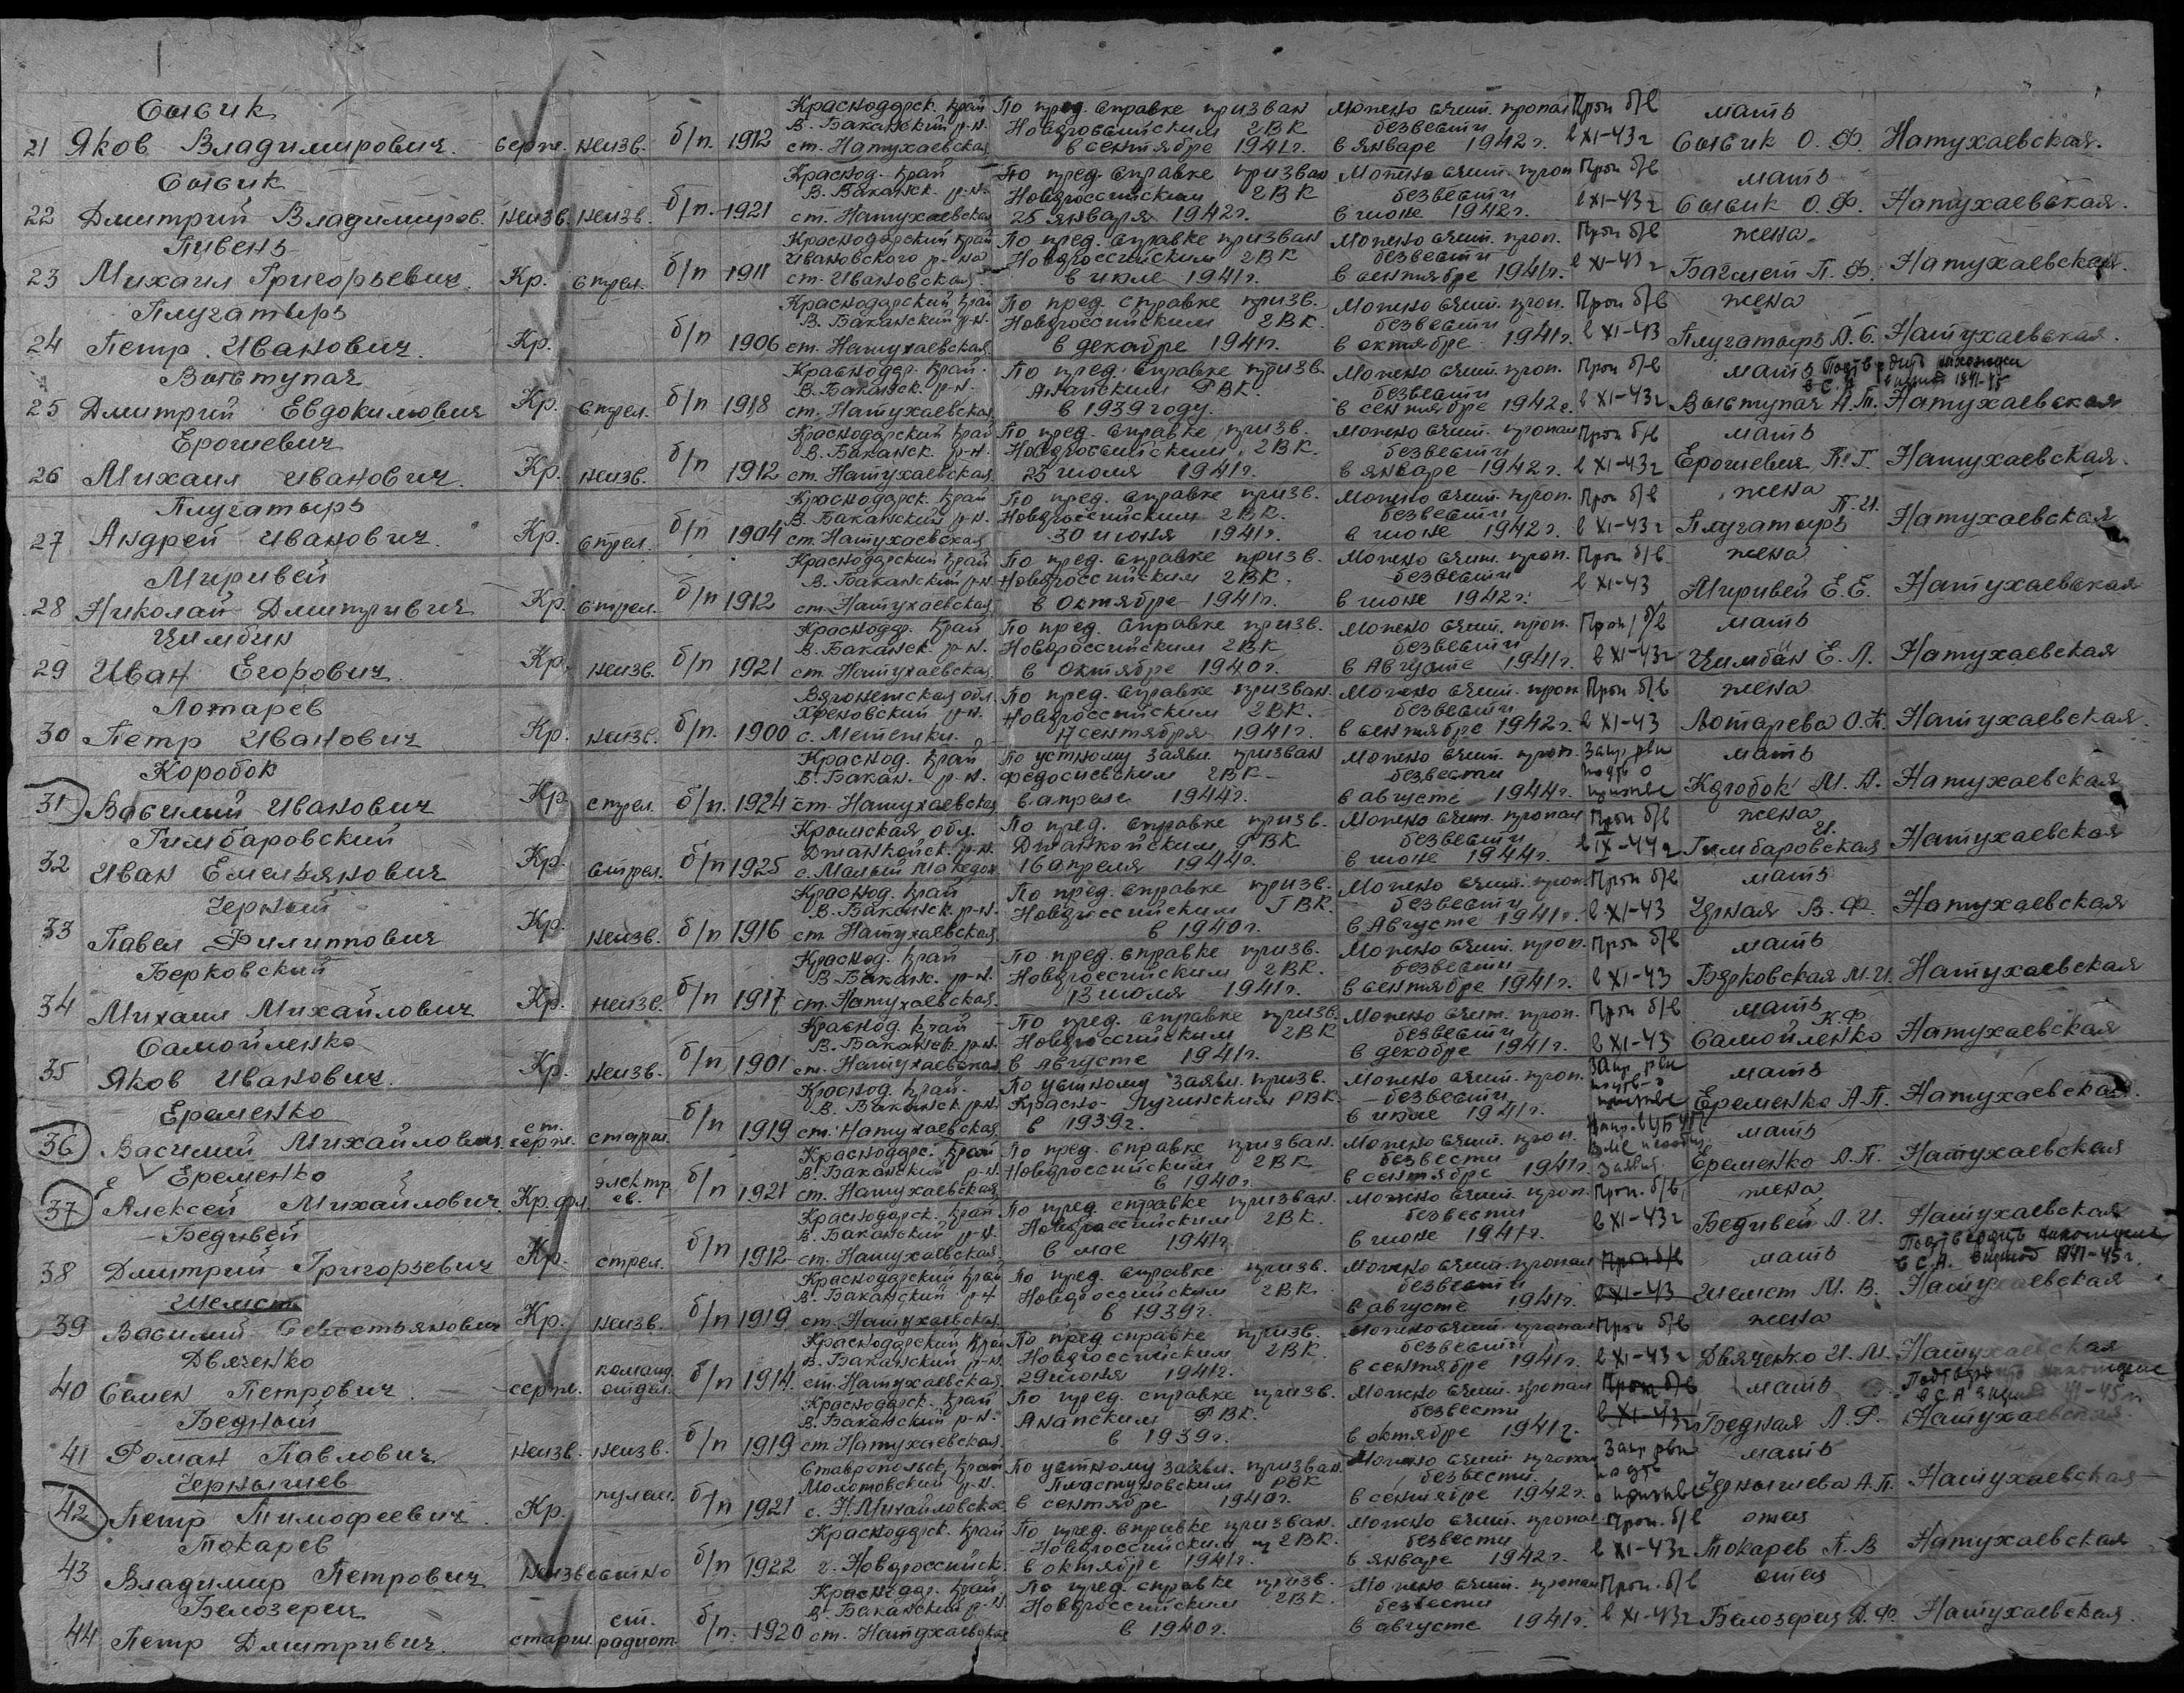 Сысик
21 Яков Владимирович. серж. неизв. б/п. 1912 Краснодарск. край В. Баканский р-н. ст. Натухаевская По пред. справке призван Новороссийским ГВК в сентябре 1941г. Можно счит. пропал безвести в январе 1942г. Проп б/в в XI-43г мать Сысик О. Ф. Натухаевская.
Сысик
22 Дмитрий Владимиров. неизв. неизв. б/п. 1921 Краснод. край В. Баканск. р-н. ст. Натухаевская По пред. справке призван Новороссийским ГВК 25 января 1942г. Можно счит. проп безвести в июне 1942г. Проп б/в в XI-43г мать Сысик О. Ф. Натухаевская.
Пивень
23 Михаил Григорьевич. Кр. стрел. б/п 1911 Краснодарский край Ивановского р-на ст. Ивановская. По пред. справке призван Новороссийским ГВК в июле 1941г. Можно счит. проп. безвести в сентябре 1941г. Проп б/в в XI-43г жена Багмет П. Ф. Натухаевская.
Плугатырь
24 Петр Иванович. Кр. б/п 1906 Краснодарский край В. Баканский р-н. ст. Натухаевская По пред. справке призв. Новороссийским ГВК. в декабре 1941г. Можно счит. проп. безвести в октябре 1941г. Проп б/в в XI-43 жена Плугатырь А. С. Натухаевская.
Выступач
25 Дмитрий Евдокимович Кр. стрел. б/п 1918 Краснодар. край. В. Баканск. р-н. ст. Натухаевская. По пред. справке призв. Анапским РВК. в 1939 году. Можно счит. проп. безвести в сентябре 1942г. Проп б/в в XI-43г мать Выступач А. Т. Натухаевская
Ерошевич
26 Михаил Иванович. Кр. неизв. б/п 1912 Краснодарский край В. Баканск р-н. ст. Натухаевская По пред. справке призв. Новороссийским ГВК. 25 июля 1941г. Можно счит. пропал безвести в январе 1942г. Проп б/в в XI-43г мать Ерошевич П. Г. Натухаевская.
Плугатырь
27 Андрей Иванович. Кр. стрел. б/п 1904 Краснодарск. край В. Баканский р-н. ст. Натухаевская По пред. справке призв. Новороссийским ГВК. 30 июня 1941г. Можно счит. проп. безвести в июне 1942г. Проп б/в в XI-43г жена Плугатырь П. И. Натухаевская
Миривей
28 Николай Дмитривич Кр. стрел. б/п 1912 Краснодарский край В. Баканский р-н. ст. Натухаевская По пред. справке призв. Новороссийским ГВК. в Октябре 1941г. Можно счит. проп. безвести в июне 1942г. Проп б/в. в XI-43 жена Миривей Е. Е. Натухаевская
Цимбин
29 Иван Егорович. Кр. неизв. б/п 1921 Краснодар. край В. Баканск. р-н. ст. Натухаевская По пред. справке призв. Новороссийским ГВК в Октябре 1940г. Можно счит. проп. безвести в Августе 1941г. Проп б/в в XI-43г мать Цимбан Е. Л. Натухаевская
Лотарев
30 Петр Иванович Кр. неизв. б/п. 1900 Хреновский р-н. По пред. справке призван. Новороссийским ГВК. 17 сентября 1941г. Можно счит. проп безвести в сентябре 1942г. Проп б/в в XI-43 жена Лотарева О. К. Натухаевская.
Коробок
31 Василий Иванович Кр. стрел. б/п. 1924 Краснод. край В. Бакан. р-н. ст. Натухаевская По устному заявл. призван Федосиевским ГВК в апреле 1944г. Можно счит. проп. безвести в августе 1944г. Запр. рвк подтв о призыве мать Коробок М. А. Натухаевская
Гимбаровский
32 Иван Емельянович Кр. стрел. б/п 1925 Крымская обл. Джанкойск. р-н. с. Малый По пред. справке призв. Джанкойским РВК 16 апреля 1944г. Можно счит. пропал безвести в июне 1944г. Проп б/в в IX-44г жена Гимбаровская И. Натухаевская
Черный
33 Павел Филиппович Кр. неизв. б/п 1916 Краснод. край В. Баканск. р-н. ст. Натухаевская По пред. справке призв. Новороссийским ГВК. в 1940г. Можно счит. проп. безвести в Августе 1941г. Проп б/в в XI-43 мать Черная В. Ф. Натухаевская
Берковский
34 Михаил Михайлович Кр. неизв. б/п 1917 Краснод. край В. Баканс. р-н. ст. Натухаевская. По пред. справке призв. Новороссийским ГВК. 13 июля 1941г. Можно счит. проп. безвести в сентябре 1941г. Проп б/в в XI-43 мать Берковская М. И. Натухаевская
Самойленко
35 Яков Иванович. Кр. неизв. б/п 1901 Краснод. край В. Баканск. р-н. ст. Натухаевская По пред. справке призв. Новороссийским ГВК в августе 1941г. Можно счит. проп. безвести в декабре 1941г. Проп б/в в XI-43 мать Самойленко К. Ф. Натухаевская
Еременко
36 Василий Михайлович ст. серж. старш. б/п 1919 Краснод. край. В. Баканск. р-н. ст. Натухаевская По устному заявл. призв. РВК в 1939г. Можно счит. проп. безвести в июле 1941г. Запр. рвк подтв-о призыве мать Еременко А. П. Натухаевская.
Еременко
37 Алексей Михайлович. Кр.фл. электр св. б/п 1921 Краснодарс. край В. Баканский р-н. ст. Натухаевская По пред. справке призван. Новороссийским ГВК в 1940г. Можно счит. проп. безвести в сентябре 1941г. мать Еременко А. П. Натухаевская
Бедивей
38 Дмитрий Григорьевич Кр. стрел. б/п 1912 Краснодарск. край В. Баканский р-н. ст. Натухаевская. По пред. справке призван. Новороссийским ГВК. в мае 1941г. Можно счит. проп. безвести в июне 1941г. Проп. б/в в XI-43г жена Бедивей А. И. Натухаевская
Шемст
39 Василий Севостьянович Кр. неизв. б/п 1919 Краснодарский край В. Баканский р-н ст. Натухаевская. По пред. справке призв. Новороссийским ГВК. в 1939г. Можно счит. пропал безвести в августе 1941г. Проп б/в в XI-43 мать Шемст М. В. Натухаевская
Дьяченко
40 Семен Петрович. серж. команд. отдел. б/п 1914 Краснодарский край В. Баканский р-н. ст. Натухаевская По пред. справке призв. Новороссийским ГВК 29 июня 1941г. Можно счит. пропал безвести в сентябре 1941г. Проп б/в в XI-43г жена Дьяченко И. М. Натухаевская
Бедный
41 Роман Павлович неизв. неизв. б/п 1919 Краснодарск. край В. Баканский р-н. ст. Натухаевская. По пред. справке призв. Анапским РВК. в 1939г. Можно счит. пропал безвести в октябре 1941г. Проп б/в в XI-43г мать Бедная А. Ф. Натухаевская
Чернышев
42 Петр Тимофеевич Кр. пулем. б/п 1921 Ставропольск. край Молотовский р-н. По устному заявл. призван. Пластуновским РВК в сентябре 1940г. Можно счит пропал безвести. в сентябре 1942г. Запр рвк подтв о призыве мать Чернышева А. П. Натухаевская
Токарев
43 Владимир Петрович Неизвестно б/п 1922 Краснодарск. край г. Новороссийск По пред. справке призван. Новороссийским ГВК. в октябре 1941г. Можно счит. пропал безвести в январе 1942г. Проп. б/в в XI-43г отец Токарев П. В Натухаевская
Белозерец
44 Петр Дмитривич. старш. ст. радист б/п. 1920 Краснодар. край. В. Баканский р-н ст. Натухаевская По пред. справке призв. Новороссийским ГВК. в 1940г. Можно счит. пропал безвести в августе 1941г. Проп. б/в в XI-43г отец Белозерец Д. Ф. Натухаевская.